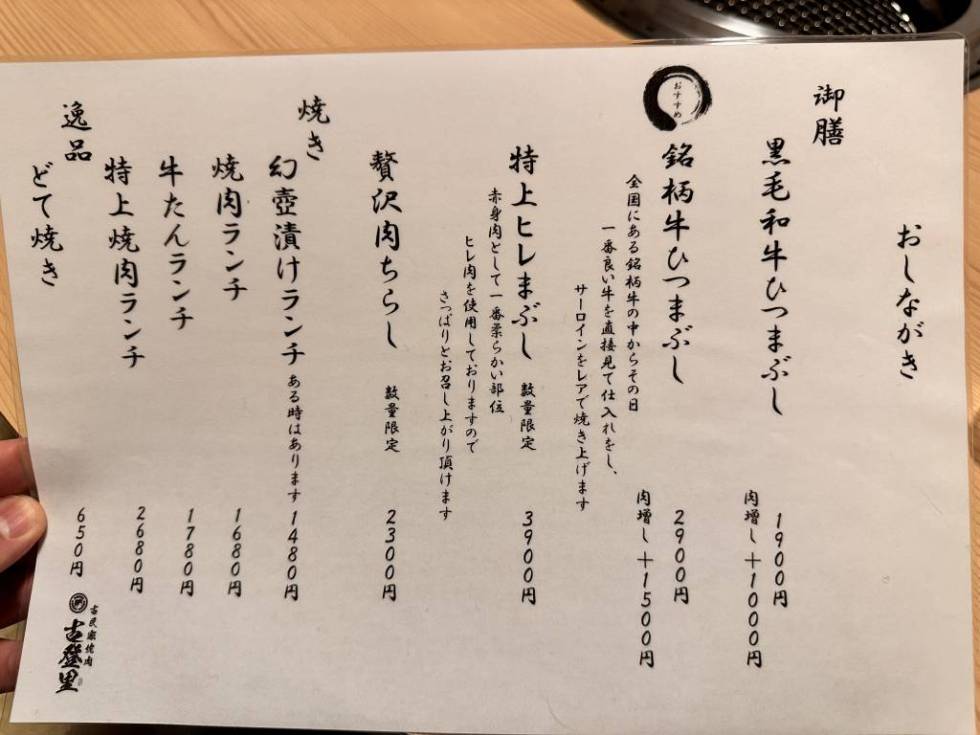 おしながき
御膳
黒毛和牛ひつまぶし
1900円
肉増し+1000円
おすすめ
銘柄牛ひつまぶし
2900円
肉増し+1500円
全国にある銘柄牛の中からその日
一番良い牛を直接見て仕入れをし、
サーロインをレアで焼き上げます
特上ヒレまぶし 数量限定 3900円
赤身肉として一番柔らかい部位
ヒレ肉を使用しておりますので
さっぱりとお召し上がり頂けます
贅沢肉ちらし 数量限定 2300円
焼き
幻壺漬けランチ ある時はあります 1480円
焼肉ランチ 1680円
牛たんランチ 1780円
特上焼肉ランチ 2680円
逸品
どて焼き 650円
古民家焼肉
古登里